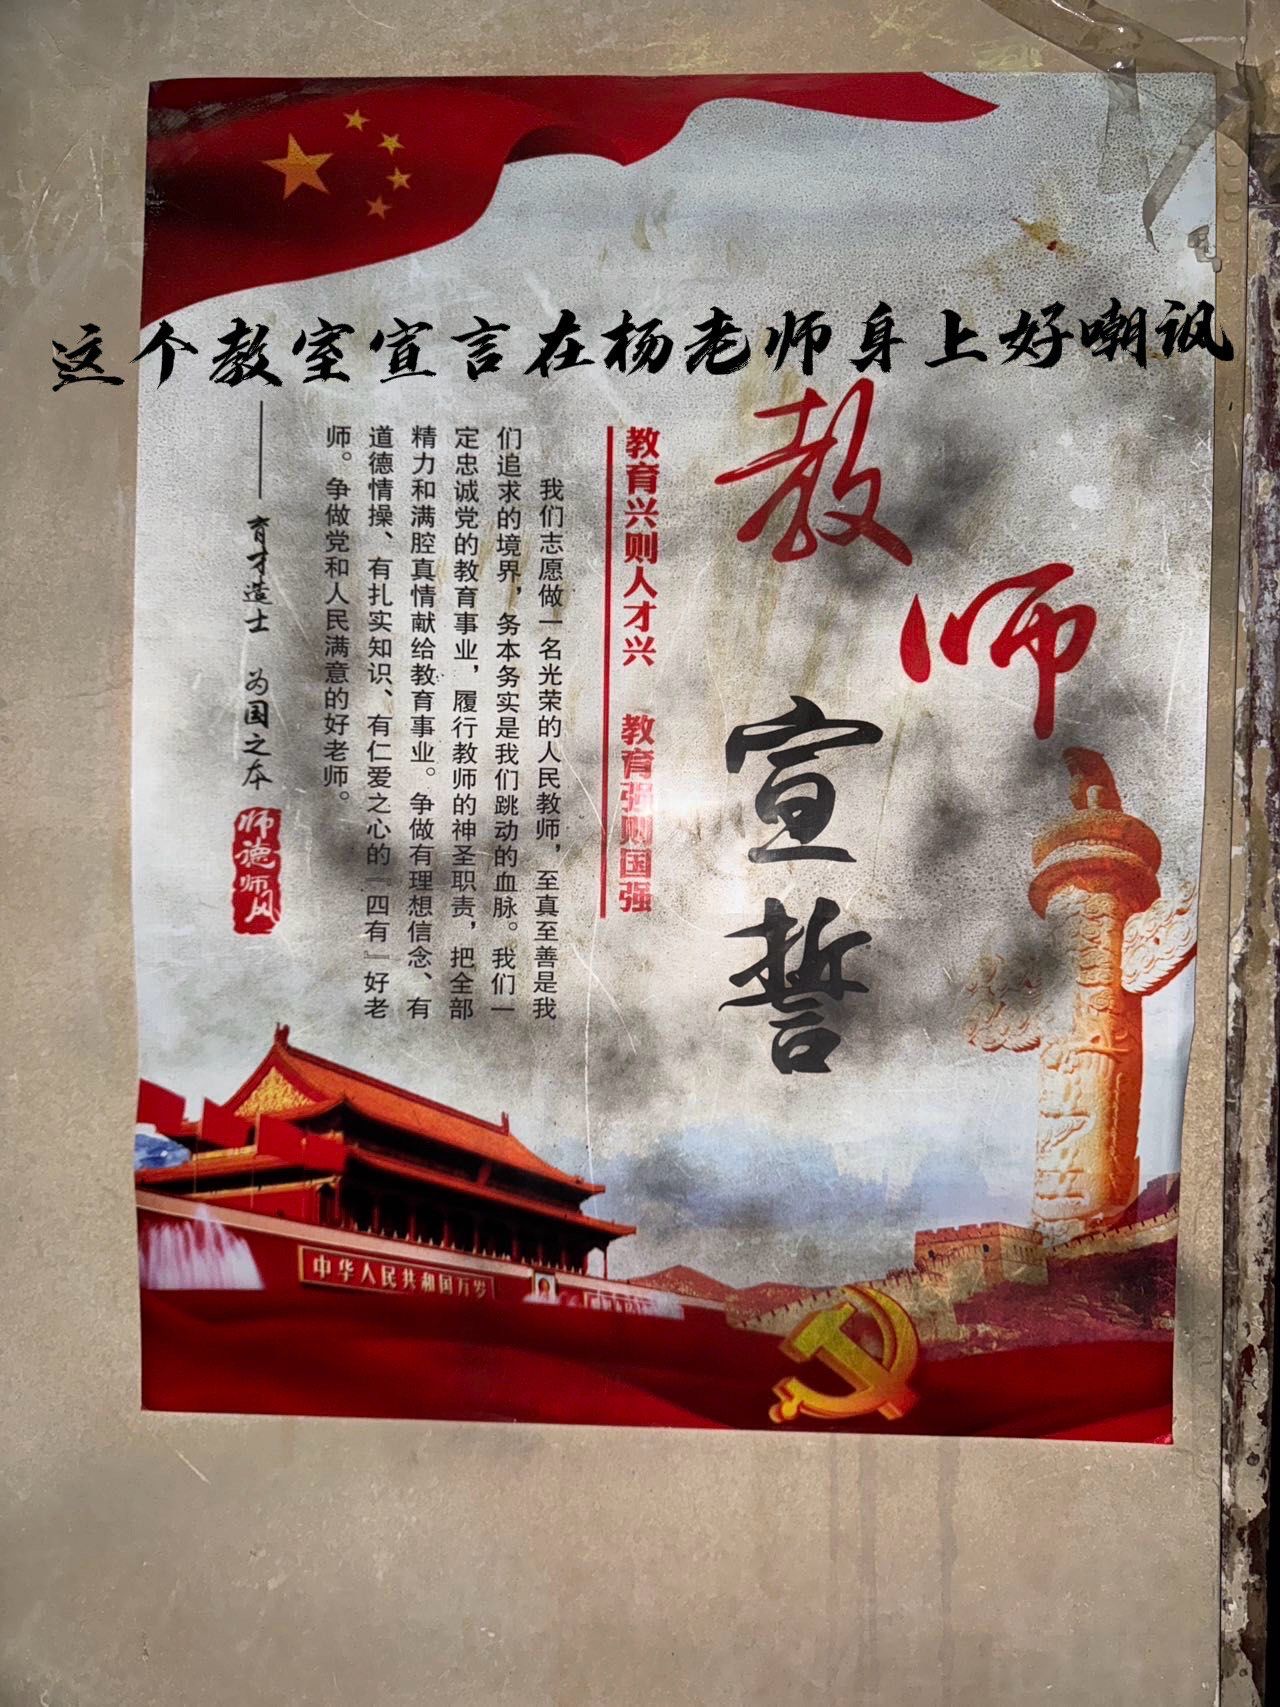 这个教室宣言在杨老师身上好嘲讽
教师
宣誓
教育兴则人才兴 教育强则国强
我们志愿做一名光荣的人民教师，至真至善是我
们追求的境界，务本务实是我们跳动的血脉。我们一
定忠诚党的教育事业，履行教师的神圣职责，把全部
精力和满腔真情献给教育事业。争做有理想信念、有
道德情操、有扎实知识、有仁爱之心的『四有』好老
师。争做党和人民满意的好老师。
——育才造士 为国之本
师德师风
中华人民共和国万岁